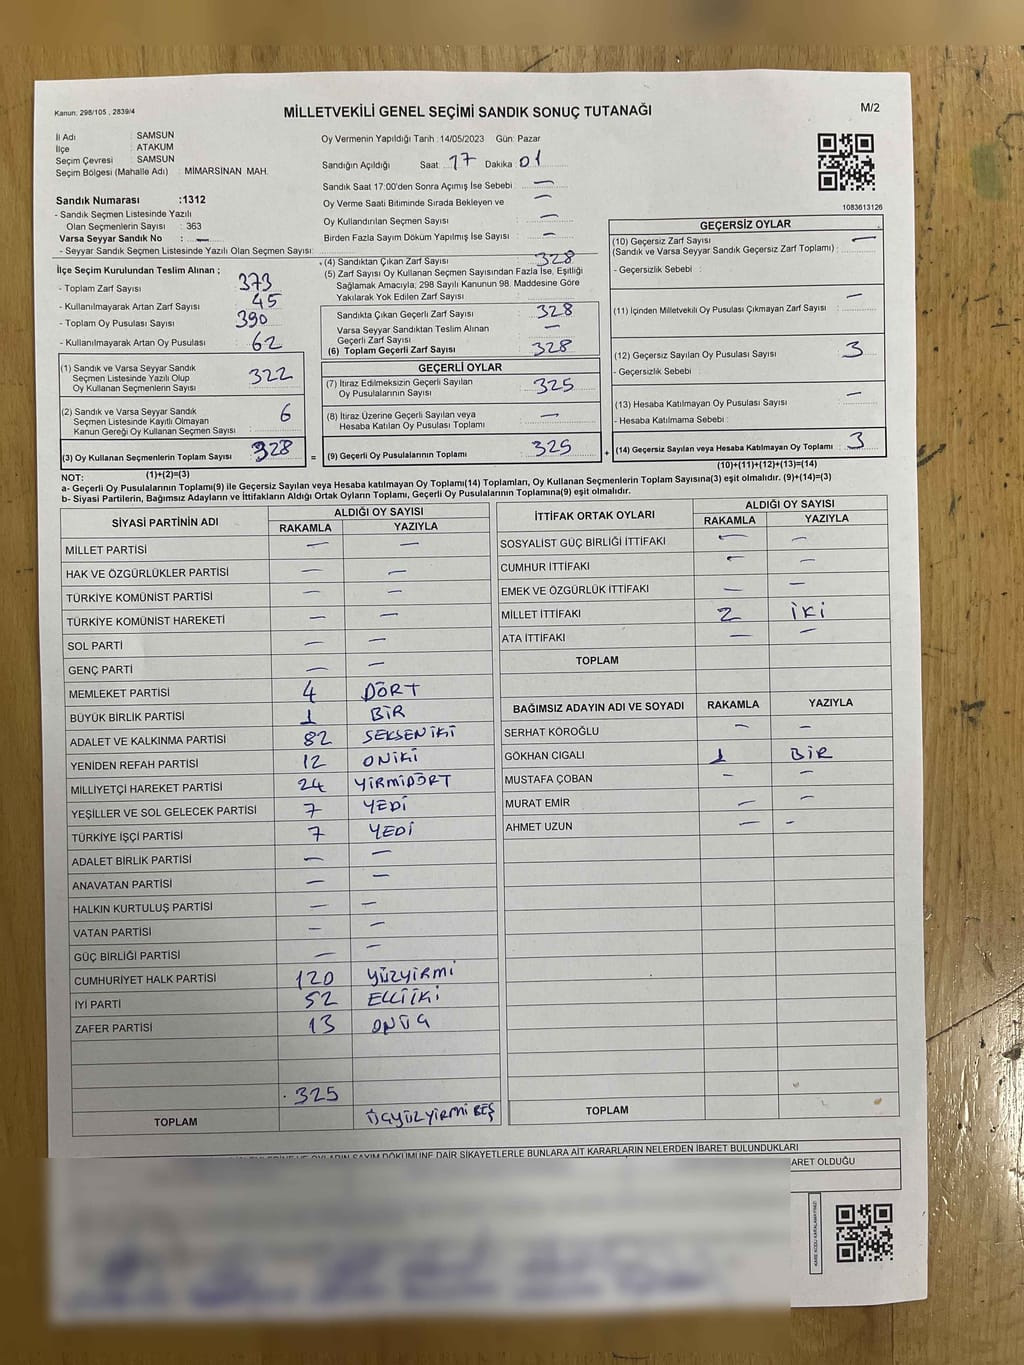 Kanun: 298/105 , 2839/4
MİLLETVEKİLİ GENEL SEÇİMİ SANDIK SONUÇ TUTANAĞI
M/2
İl Adı : SAMSUN
İlçe : ATAKUM
Seçim Çevresi : SAMSUN
Seçim Bölgesi (Mahalle Adı) : MİMARSİNAN MAH.
Sandık Numarası :1312
- Sandık Seçmen Listesinde Yazılı
Olan Seçmenlerin Sayısı : 363
Varsa Seyyar Sandık No : —
- Seyyar Sandık Seçmen Listesinde Yazılı Olan Seçmen Sayısı:
İlçe Seçim Kurulundan Teslim Alınan ;
- Toplam Zarf Sayısı 373
- Kullanılmayarak Artan Zarf Sayısı 45
- Toplam Oy Pusulası Sayısı 390
- Kullanılmayarak Artan Oy Pusulası 62
(1) Sandık ve Varsa Seyyar Sandık
Seçmen Listesinde Yazılı Olup
Oy Kullanan Seçmenlerin Sayısı 322
(2) Sandık ve Varsa Seyyar Sandık
Seçmen Listesinde Kayıtlı Olmayan
Kanun Gereği Oy Kullanan Seçmen Sayısı : 6
(3) Oy Kullanan Seçmenlerin Toplam Sayısı 328
(1)+(2)=(3)
Oy Vermenin Yapıldığı Tarih : 14/05/2023 Gün: Pazar
Sandığın Açıldığı Saat : 17 Dakika : 01
Sandık Saat 17:00'den Sonra Açımış İse Sebebi : —
Oy Verme Saati Bitiminde Sırada Bekleyen ve —
Oy Kullandırılan Seçmen Sayısı : —
Birden Fazla Sayım Döküm Yapılmış İse Sayısı : —
(4) Sandıktan Çıkan Zarf Sayısı : 328
(5) Zarf Sayısı Oy Kullanan Seçmen Sayısından Fazla İse, Eşitliği
Sağlamak Amacıyla; 298 Sayılı Kanunun 98. Maddesine Göre
Yakılarak Yok Edilen Zarf Sayısı :
Sandıkta Çıkan Geçerli Zarf Sayısı : 328
Varsa Seyyar Sandıktan Teslim Alınan
Geçerli Zarf Sayısı : —
(6) Toplam Geçerli Zarf Sayısı : 328
GEÇERLİ OYLAR
(7) İtiraz Edilmeksizin Geçerli Sayılan
Oy Pusulalarının Sayısı : 325
(8) İtiraz Üzerine Geçerli Sayılan veya
Hesaba Katılan Oy Pusulası Toplamı : —
= (9) Geçerli Oy Pusulalarının Toplamı 325 +
1083613126
GEÇERSİZ OYLAR
(10) Geçersiz Zarf Sayısı —
(Sandık ve Varsa Seyyar Sandık Geçersiz Zarf Toplamı) :
- Geçersizlik Sebebi :
(11) İçinden Milletvekili Oy Pusulası Çıkmayan Zarf Sayısı : —
(12) Geçersiz Sayılan Oy Pusulası Sayısı : 3
- Geçersizlik Sebebi :
(13) Hesaba Katılmayan Oy Pusulası Sayısı : —
- Hesaba Katılmama Sebebi :
(14) Geçersiz Sayılan veya Hesaba Katılmayan Oy Toplamı : 3
(10)+(11)+(12)+(13)=(14)
NOT:
a- Geçerli Oy Pusulalarının Toplamı(9) ile Geçersiz Sayılan veya Hesaba katılmayan Oy Toplamı(14) Toplamları, Oy Kullanan Seçmenlerin Toplam Sayısına(3) eşit olmalıdır. (9)+(14)=(3)
b- Siyasi Partilerin, Bağımsız Adayların ve İttifakların Aldığı Ortak Oyların Toplamı, Geçerli Oy Pusulalarının Toplamına(9) eşit olmalıdır.
SİYASİ PARTİNİN ADI ALDIĞI OY SAYISI
RAKAMLA YAZIYLA
MİLLET PARTİSİ — —
HAK VE ÖZGÜRLÜKLER PARTİSİ — —
TÜRKİYE KOMÜNİST PARTİSİ — —
TÜRKİYE KOMÜNİST HAREKETİ — —
SOL PARTİ — —
GENÇ PARTİ — —
MEMLEKET PARTİSİ 4 DÖRT
BÜYÜK BİRLİK PARTİSİ 1 BİR
ADALET VE KALKINMA PARTİSİ 82 SEKSENİKİ
YENİDEN REFAH PARTİSİ 12 ONİKİ
MİLLİYETÇİ HAREKET PARTİSİ 24 YİRMİDÖRT
YEŞİLLER VE SOL GELECEK PARTİSİ 7 YEDİ
TÜRKİYE İŞÇİ PARTİSİ 7 YEDİ
ADALET BİRLİK PARTİSİ — —
ANAVATAN PARTİSİ — —
HALKIN KURTULUŞ PARTİSİ — —
VATAN PARTİSİ — —
GÜÇ BİRLİĞİ PARTİSİ — —
CUMHURİYET HALK PARTİSİ 120 YÜZYİRMİ
İYİ PARTİ 52 ELLİİKİ
ZAFER PARTİSİ 13 ONÜÇ
325
TOPLAM ÜÇYÜZYİRMİBEŞ
İTTİFAK ORTAK OYLARI ALDIĞI OY SAYISI
RAKAMLA YAZIYLA
SOSYALİST GÜÇ BİRLİĞİ İTTİFAKI — —
CUMHUR İTTİFAKI — —
EMEK VE ÖZGÜRLÜK İTTİFAKI — —
MİLLET İTTİFAKI 2 İKİ
ATA İTTİFAKI — —
TOPLAM
BAĞIMSIZ ADAYIN ADI VE SOYADI RAKAMLA YAZIYLA
SERHAT KÖROĞLU — —
GÖKHAN CIGALI 1 BİR
MUSTAFA ÇOBAN — —
MURAT EMİR — —
AHMET UZUN — —
TOPLAM
OYLARIN SAYIM DÖKÜMÜNE DAİR ŞİKAYETLERLE BUNLARA AİT KARARLARIN NELERDEN İBARET BULUNDUKLARI
ARET OLDUĞU